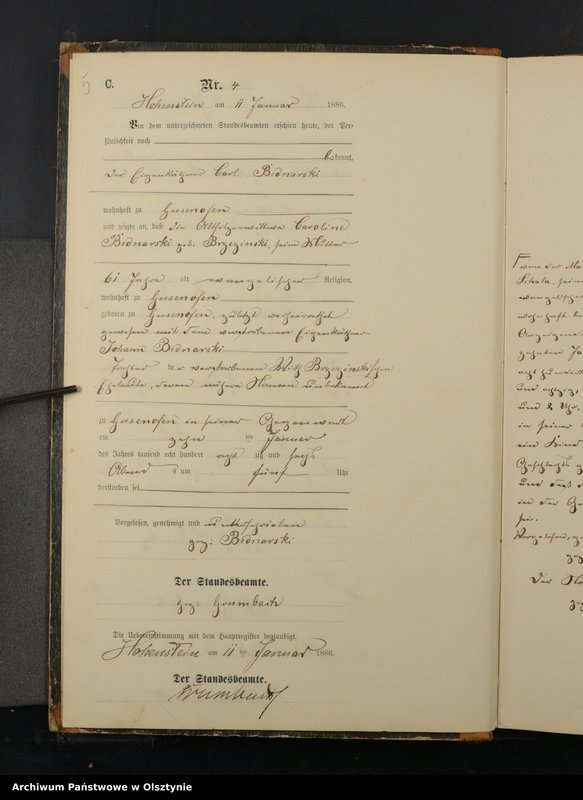 5
C.
Nr. 4
Hohenstein am 11 Januar 1886.
Vor dem unterzeichneten Standesbeamten erschien heute, der Per-
sönlichkeit nach
bekannt,
der Eigenkäthner Carl Bednarski
wohnhaft zu Gusenofen
und zeigte an, daß die Altsitzerwittwe Caroline
Bednarski geb. Brzezinski, seine Mutter
61 Jahre alt evangelischer Religion,
wohnhaft zu Gusenofen
geboren zu Gusenofen, zuletzt verheirathet
gewesen mit dem verstorbenen Eigenkäthner
Johann Bednarski
Tochter der verstorbenen Wirth Brzezinskischen
Eheleute, deren nähere Namen unbekannt
zu Gusenofen in seiner Gegenwart
am zehn ten Januar
des Jahres tausend acht hundert acht zig und sechs
Abend s um fünf Uhr
verstorben sei
Vorgelesen, genehmigt und unterschrieben
gez: Bednarski
Der Standesbeamte.
gez: Grumbach
Die Uebereinstimmung mit dem Hauptregister beglaubigt.
Hohenstein am 11 ten Januar 1886.
Der Standesbeamte.
Grumbach
von der
seine
in seiner
ein Kind
Geschlechts
und
in der
sei.
Vorgelesen,
Der
Archiwum Państwowe w Olsztynie